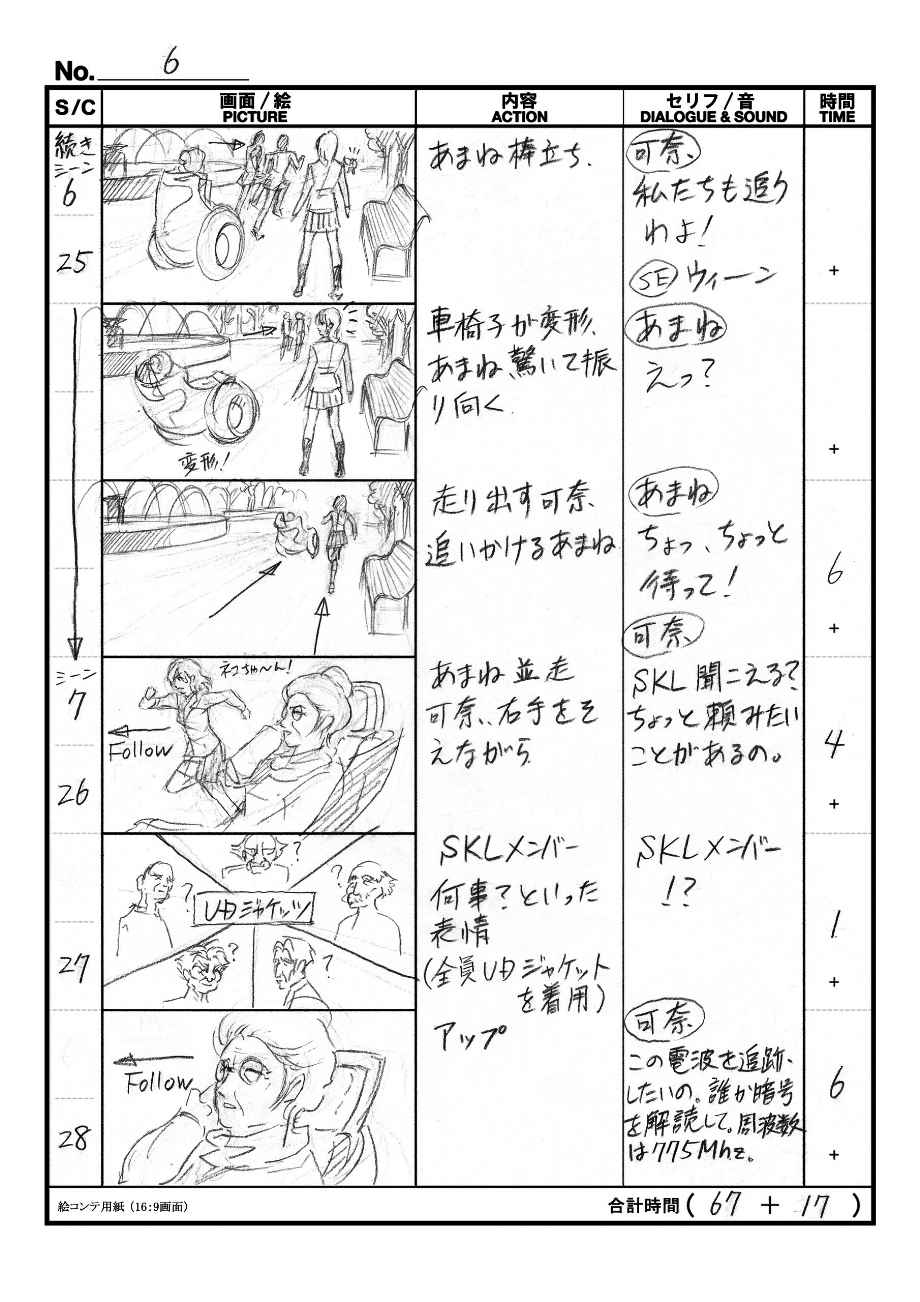 No. 6
S/C
画面/絵
PICTURE
内容
ACTION
セリフ/音
DIALOGUE & SOUND
時間
TIME
続き
シーン
6
25
あまね棒立ち、
可奈、
私たちも追う
わよ!
SE ウィーン
+
変形!
車椅子が変形、
あまね、驚いて振
り向く
あまね
えっ?
+
走り出す可奈、
追いかけるあまね
あまね
ちょっ、ちょっと
待って!
6
+
シーン
7
26
ネコちゃ〜ん!
Follow
あまね並走
可奈、右手をそ
えながら
可奈、
SKL聞こえる?
ちょっと頼みたい
ことがあるの。
4
+
27
?
?
?
?
?
UDジャケッツ
SKLメンバー
何事?といった
表情
(全員UDジャケット
を着用)
SKLメンバー
!?
1
+
28
Follow
アップ
可奈
この電波を追跡
したいの。誰か暗号
を解読して。周波数
は775Mhz。
6
+
絵コンテ用紙(16:9画面)
合計時間( 67 + 17 )